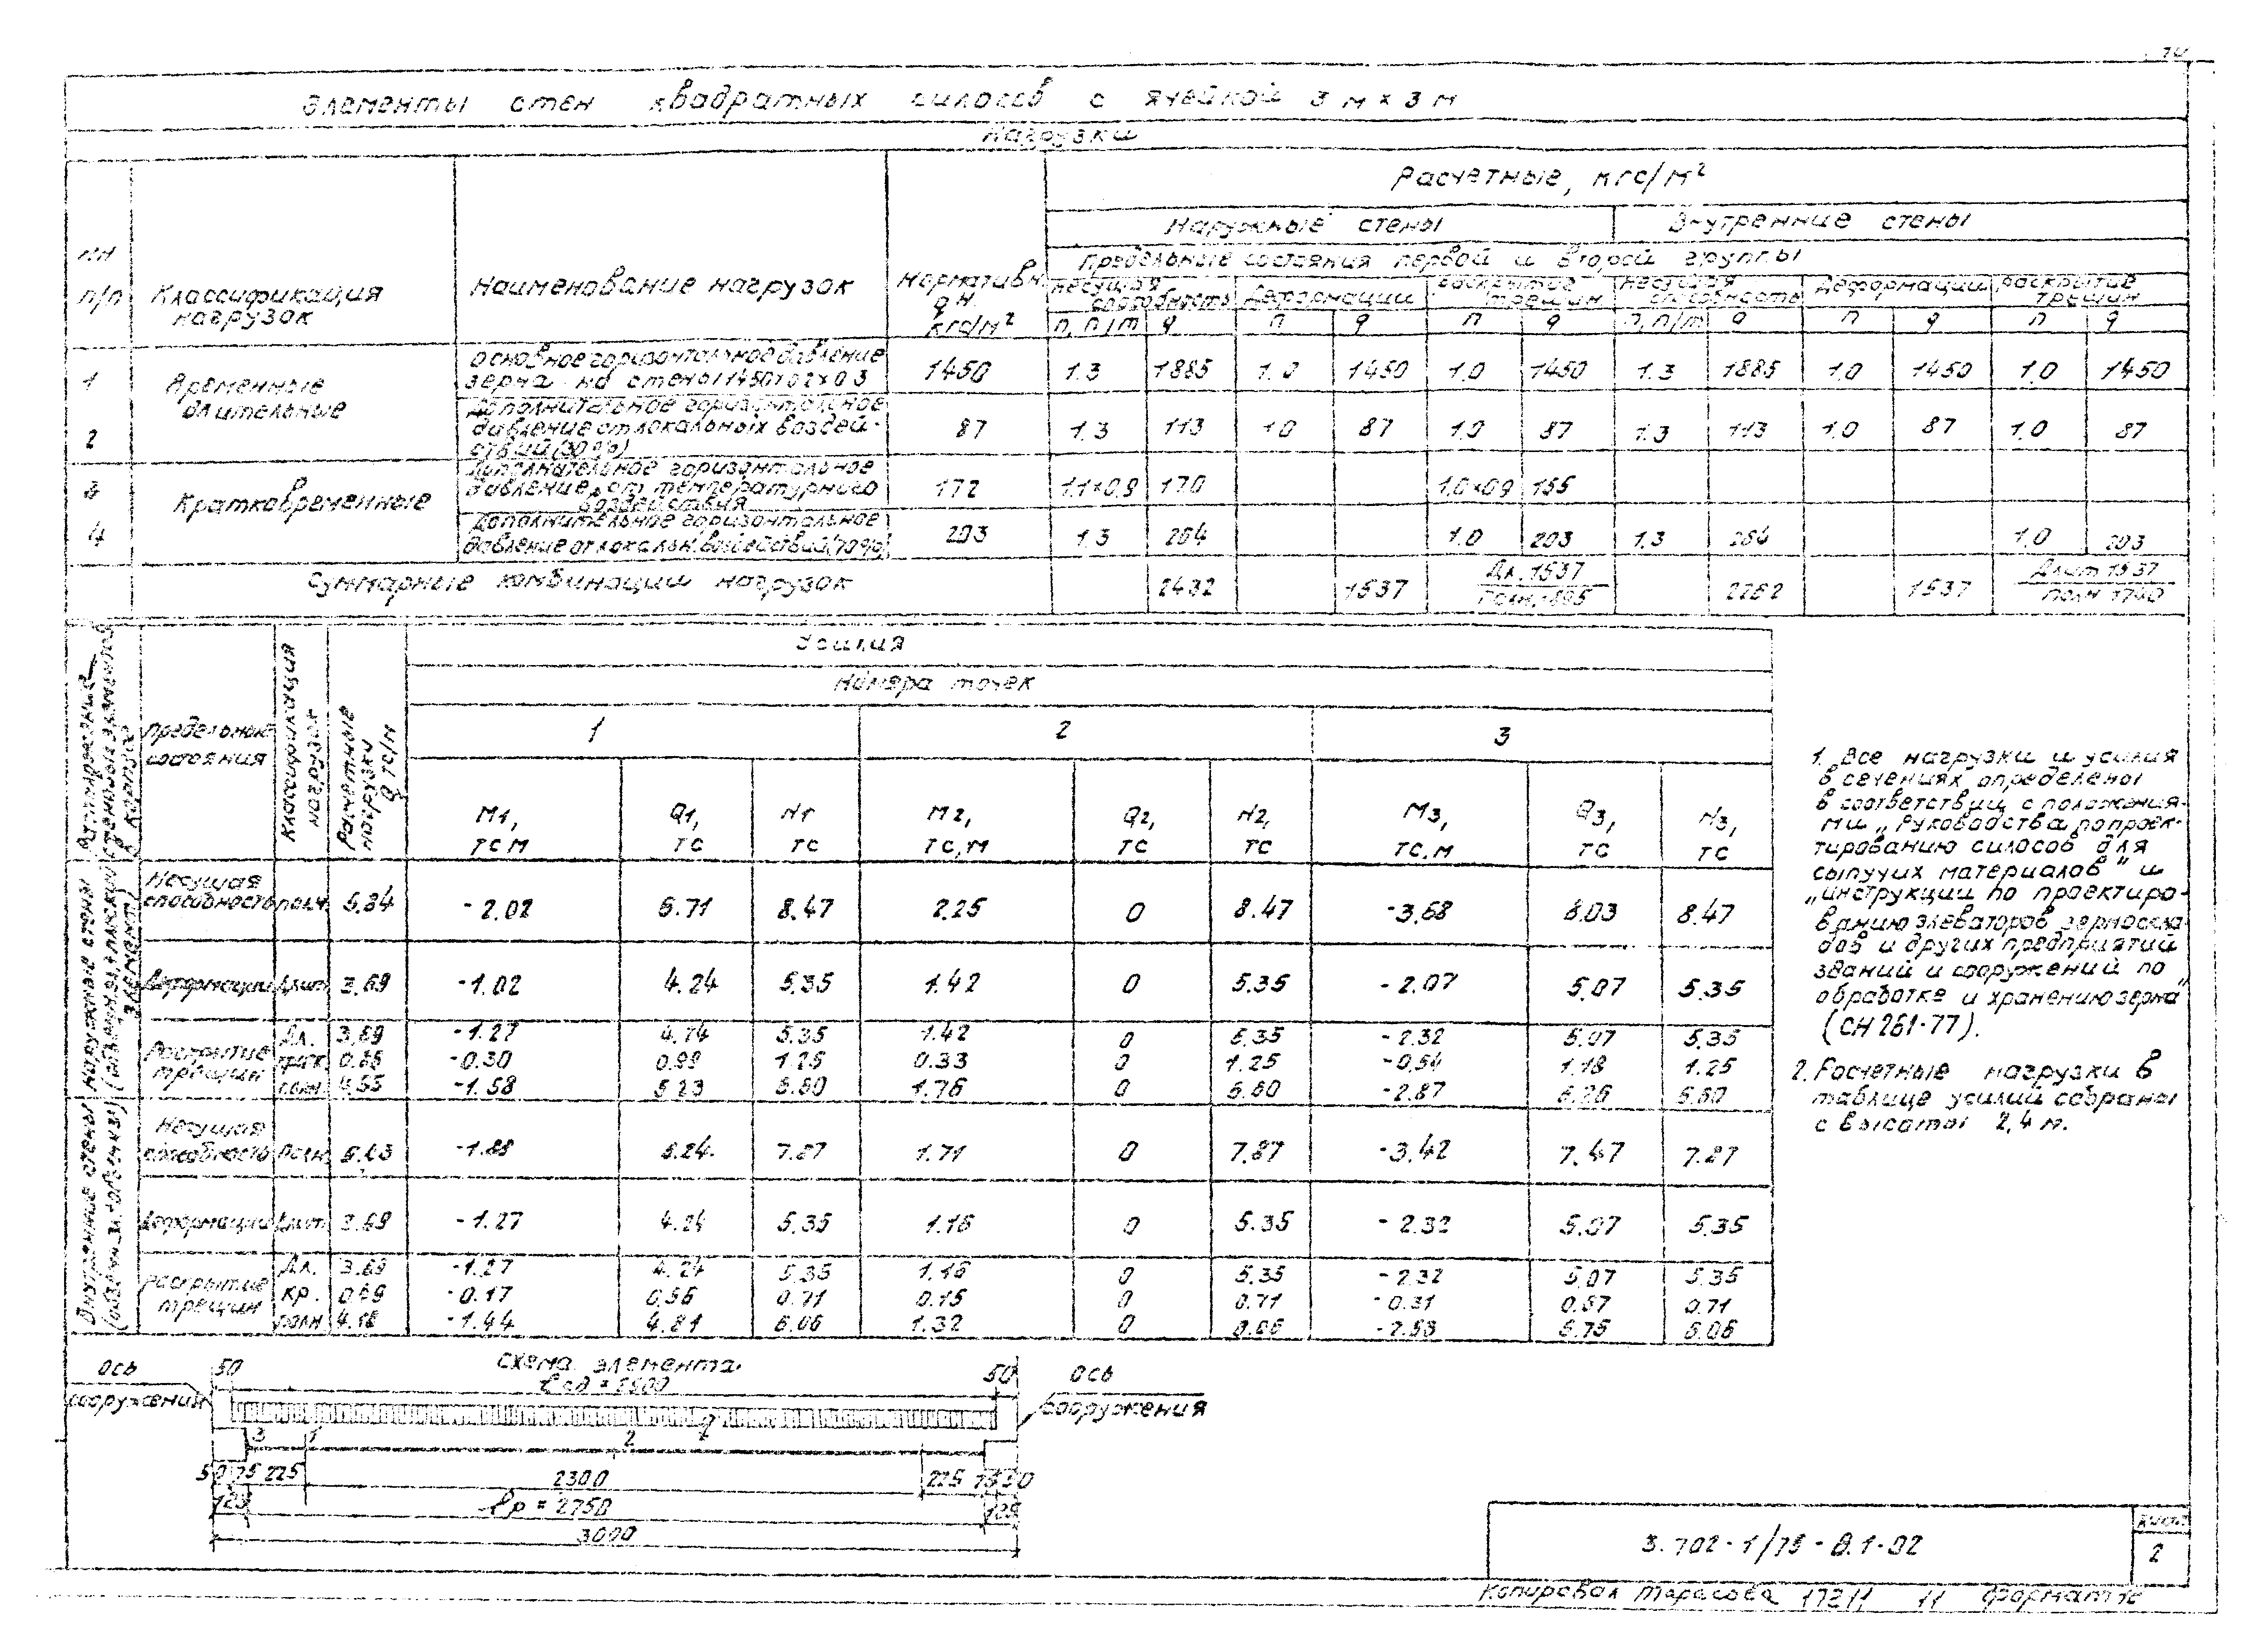 Элементы стен квадратных силосов с ячейкой 3 м × 3 м
Нагрузки
пп п/п
Классификация нагрузок
Наименование нагрузок
Нормативн. qн. кгс/м²
Расчетные, кгс/м²
Наружные стены
Внутренние стены
Предельные состояния первой и второй группы
Несущая способность Деформации Раскрытие трещин Несущая способность Деформации Раскрытие трещин
п, п/т q п q п q п, п/т q п q п q
1 Временные длительные
Основное горизонтальное давление
зерна на стены
1450 1.3 1885 1.0 1450 1.0 1450 1.3 1885 1.0 1450 1.0 1450
2 Дополнительное горизонтальное
давление от локальных воздей-
ствий (30%)
87 1.3 113 1.0 87 1.0 87 1.3 113 1.0 87 1.0 87
3 Кратковременные
Дополнительное горизонтальное
давление от температурного
воздействия
172 1.1×0.9 170 1.0×0.9 155
4 Дополнительное горизонтальное
давление от локальн. воздействий (70%)
203 1.3 264 1.0 203 1.3 264 1.0 203
Суммарные комбинации нагрузок
2432 1537 Дл. 1537 1537 Длит 1537
полн 1740
Усилия
Номера точек
Предельные состояния
Классификация нагрузок
Расчетные нагрузки q тс/м
1 2 3
М1, Q1, N1 М2, Q2, N2, М3, Q3, N3,
ТС.М ТС ТС ТС.М ТС ТС ТС.М ТС ТС
Наружные стены
Несущая способность полн. 5.84 -2.02 6.71 8.47 2.25 0 8.47 -3.68 8.03 8.47
Деформации длит 3.69 -1.02 4.24 5.35 1.42 0 5.35 -2.07 5.07 5.35
Раскрытие трещин
Дл. 3.69 -1.27 5.35 1.42 0 5.35 -2.32 5.07 5.35
-0.30 1.25 0.33 0 1.25 -0.54 1.18 1.25
-1.58 5.23 6.60 1.76 0 6.60 -2.87 6.26 6.60
Внутренние стены
Несущая способность полн -1.88 6.24 7.87 1.71 0 7.87 -3.42 7.47 7.87
Деформации длит 3.69 -1.27 4.24 5.35 1.16 0 5.35 -2.32 5.07 5.35
Раскрытие трещин
Дл. 3.69 -1.27 4.24 5.35 1.16 0 5.35 -2.32 5.07 5.35
кр. -0.17 0.56 0.71 0.15 0 0.71 -0.31 0.67 0.71
полн 4.18 -1.44 4.81 6.06 1.32 0 6.06 6.06
1. Все нагрузки и усилия
в сечениях определены
в соответствии с положения-
ми „Руководства по проек-
тированию силосов для
сыпучих материалов" и
„Инструкции по проектиро-
ванию элеваторов, зерноскла-
дов и других предприятий
зданий и сооружений по
обработке и хранению зерна"
(СН 261-77).
2. Расчетные нагрузки в
таблице усилий собраны
с высоты 2,4 м.
Схема элемента
Ось сооружения
50 50
Ось сооружения
3 1 2
50 75 225 2300 225 75 50
125 ℓр = 2750 125
3000
3.702-1/75-В.1-02
Лист
2
Копировал Тарасова 17211 11 Формат